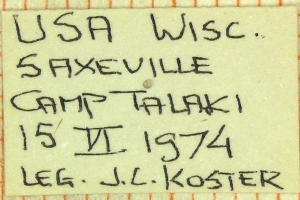 USA WISC.
SAXEVILLE
CAMP TALAKI
15 VI 1974
LEG. J.L. KOSTER